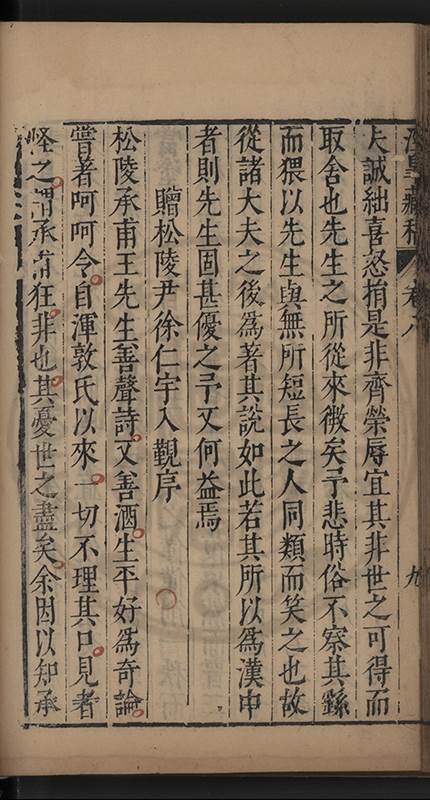 夫誠絀喜怒捐是非齊榮辱宜其非世之可得而
取舍也先生之所從來微矣予悲時俗不察其繇
而猥以先生與無所短長之人同類而笑之也故
從諸大夫之後爲著其說如此若其所以爲漢中
者則先生固甚優之予又何益焉
贈松陵尹徐仁宇入覲序
松陵承甫王先生善聲詩又善酒生平好爲奇論
嘗著呵呵令自渾敦氏以來一切不理其口見者
怪之謂承甫狂非也其憂世之盡矣余因以知承